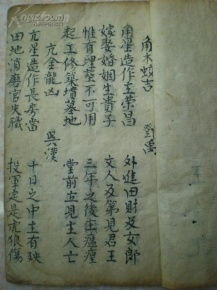 角木蛟吉　鄧禹
角星造作主榮昌　外進田財及女郎
嫁娶婚姻生貴子　文人及第見君王
惟有埋葬不可用　三年之後主瘟
起工修築墳墓地　堂前立見主人亡
亢金龍凶　吳漢
亢星造作長房當　十日之中主有殃
田地消磨官失職　投軍定是虎狼傷